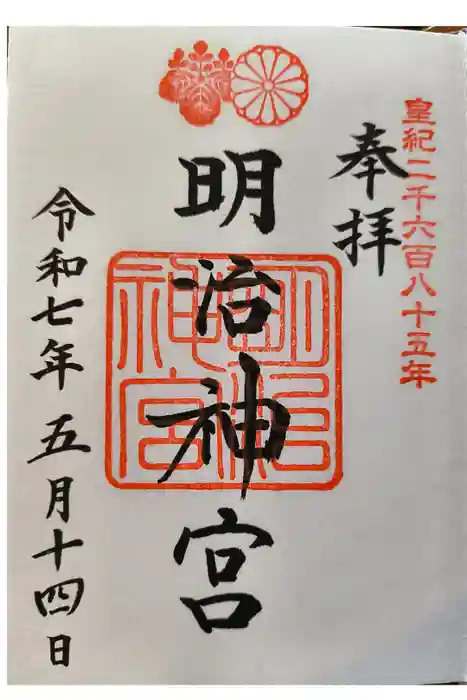 皇紀二千六百八十五年
奉拝
明治神宮
明治神宮
令和七年 五月十四日